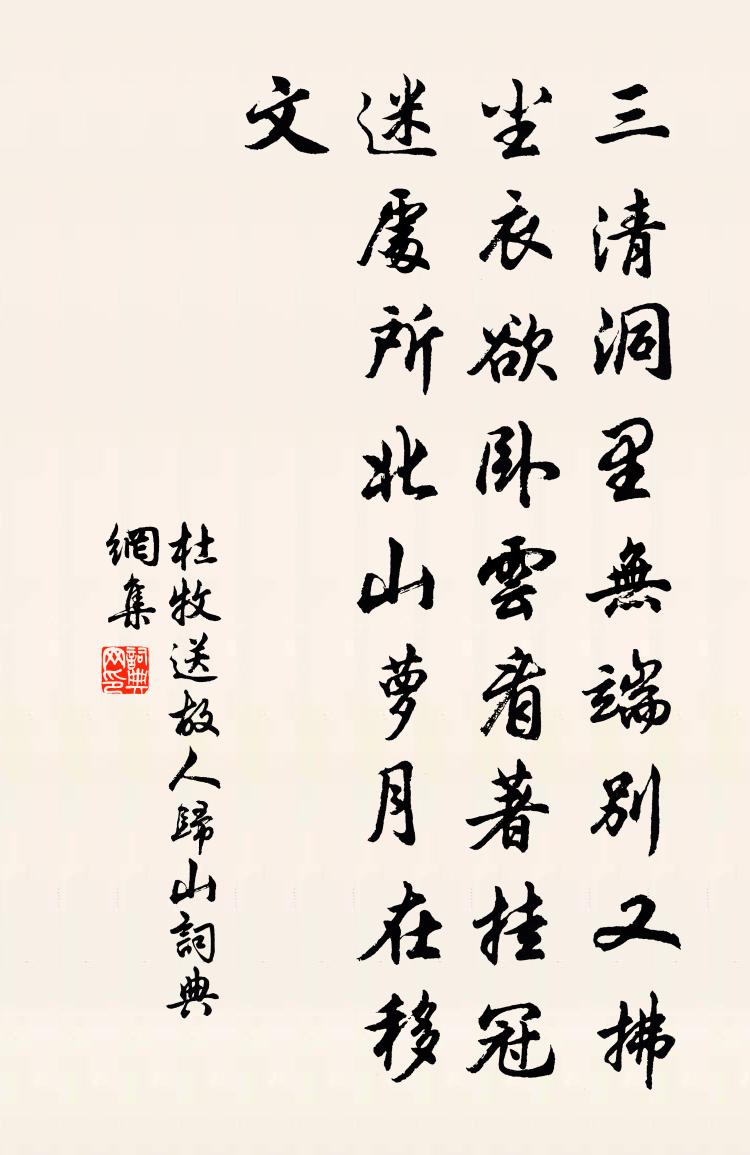 三清洞里無端別又拂
尘衣欲卧雲看著挂冠
迷處所北山萝月在移
文
杜牧送故人歸山詞典
網集
詞典
网印